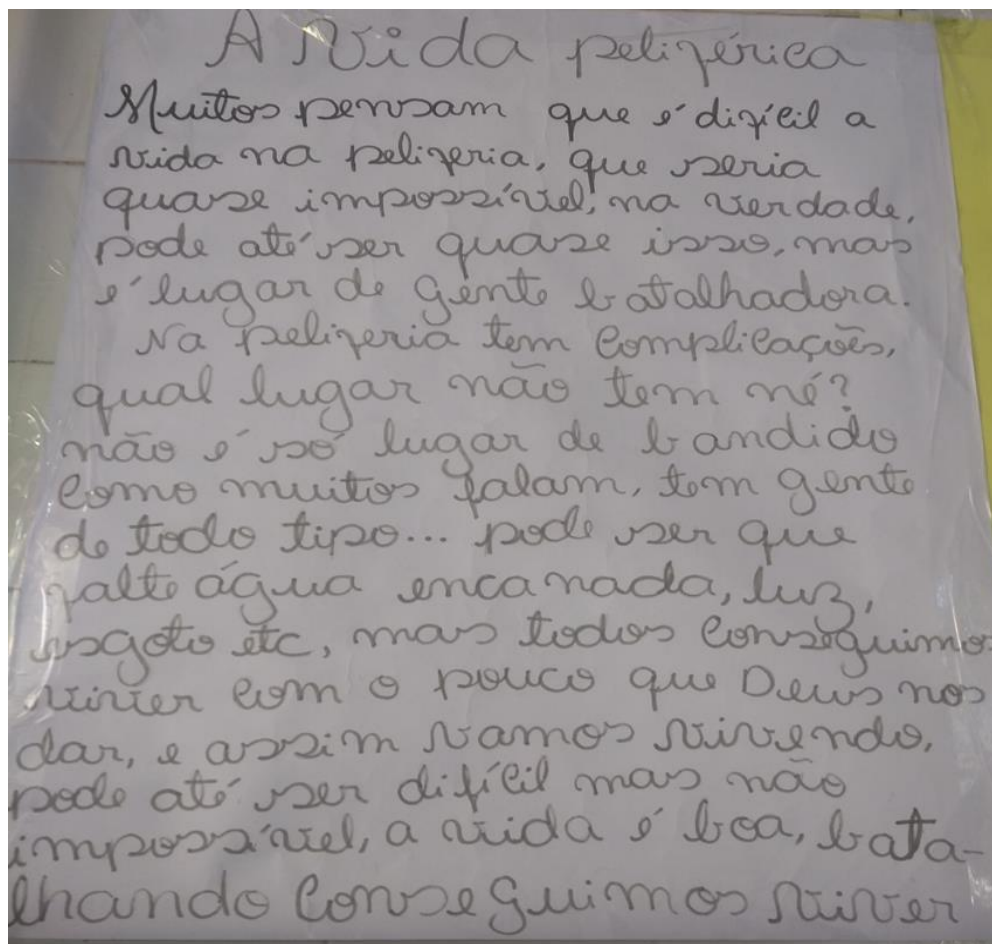 A Vida peliférica
Muitos pensam que é difícil a
vida na peliferia, que seria
quase impossível, na verdade,
pode até ser quase isso, mas
é lugar de gente batalhadora.
Na peliferia tem complicações,
qual lugar não tem né?
não é só lugar de bandido
como muitos falam, tem gente
de todo tipo... pode ser que
falte água encanada, luz,
esgoto etc, mas todos conseguimos
viver com o pouco que Deus nos
dar, e assim vamos vivendo,
pode até ser difícil mas não
impossível, a vida é boa, bata-
lhando conseguimos viver